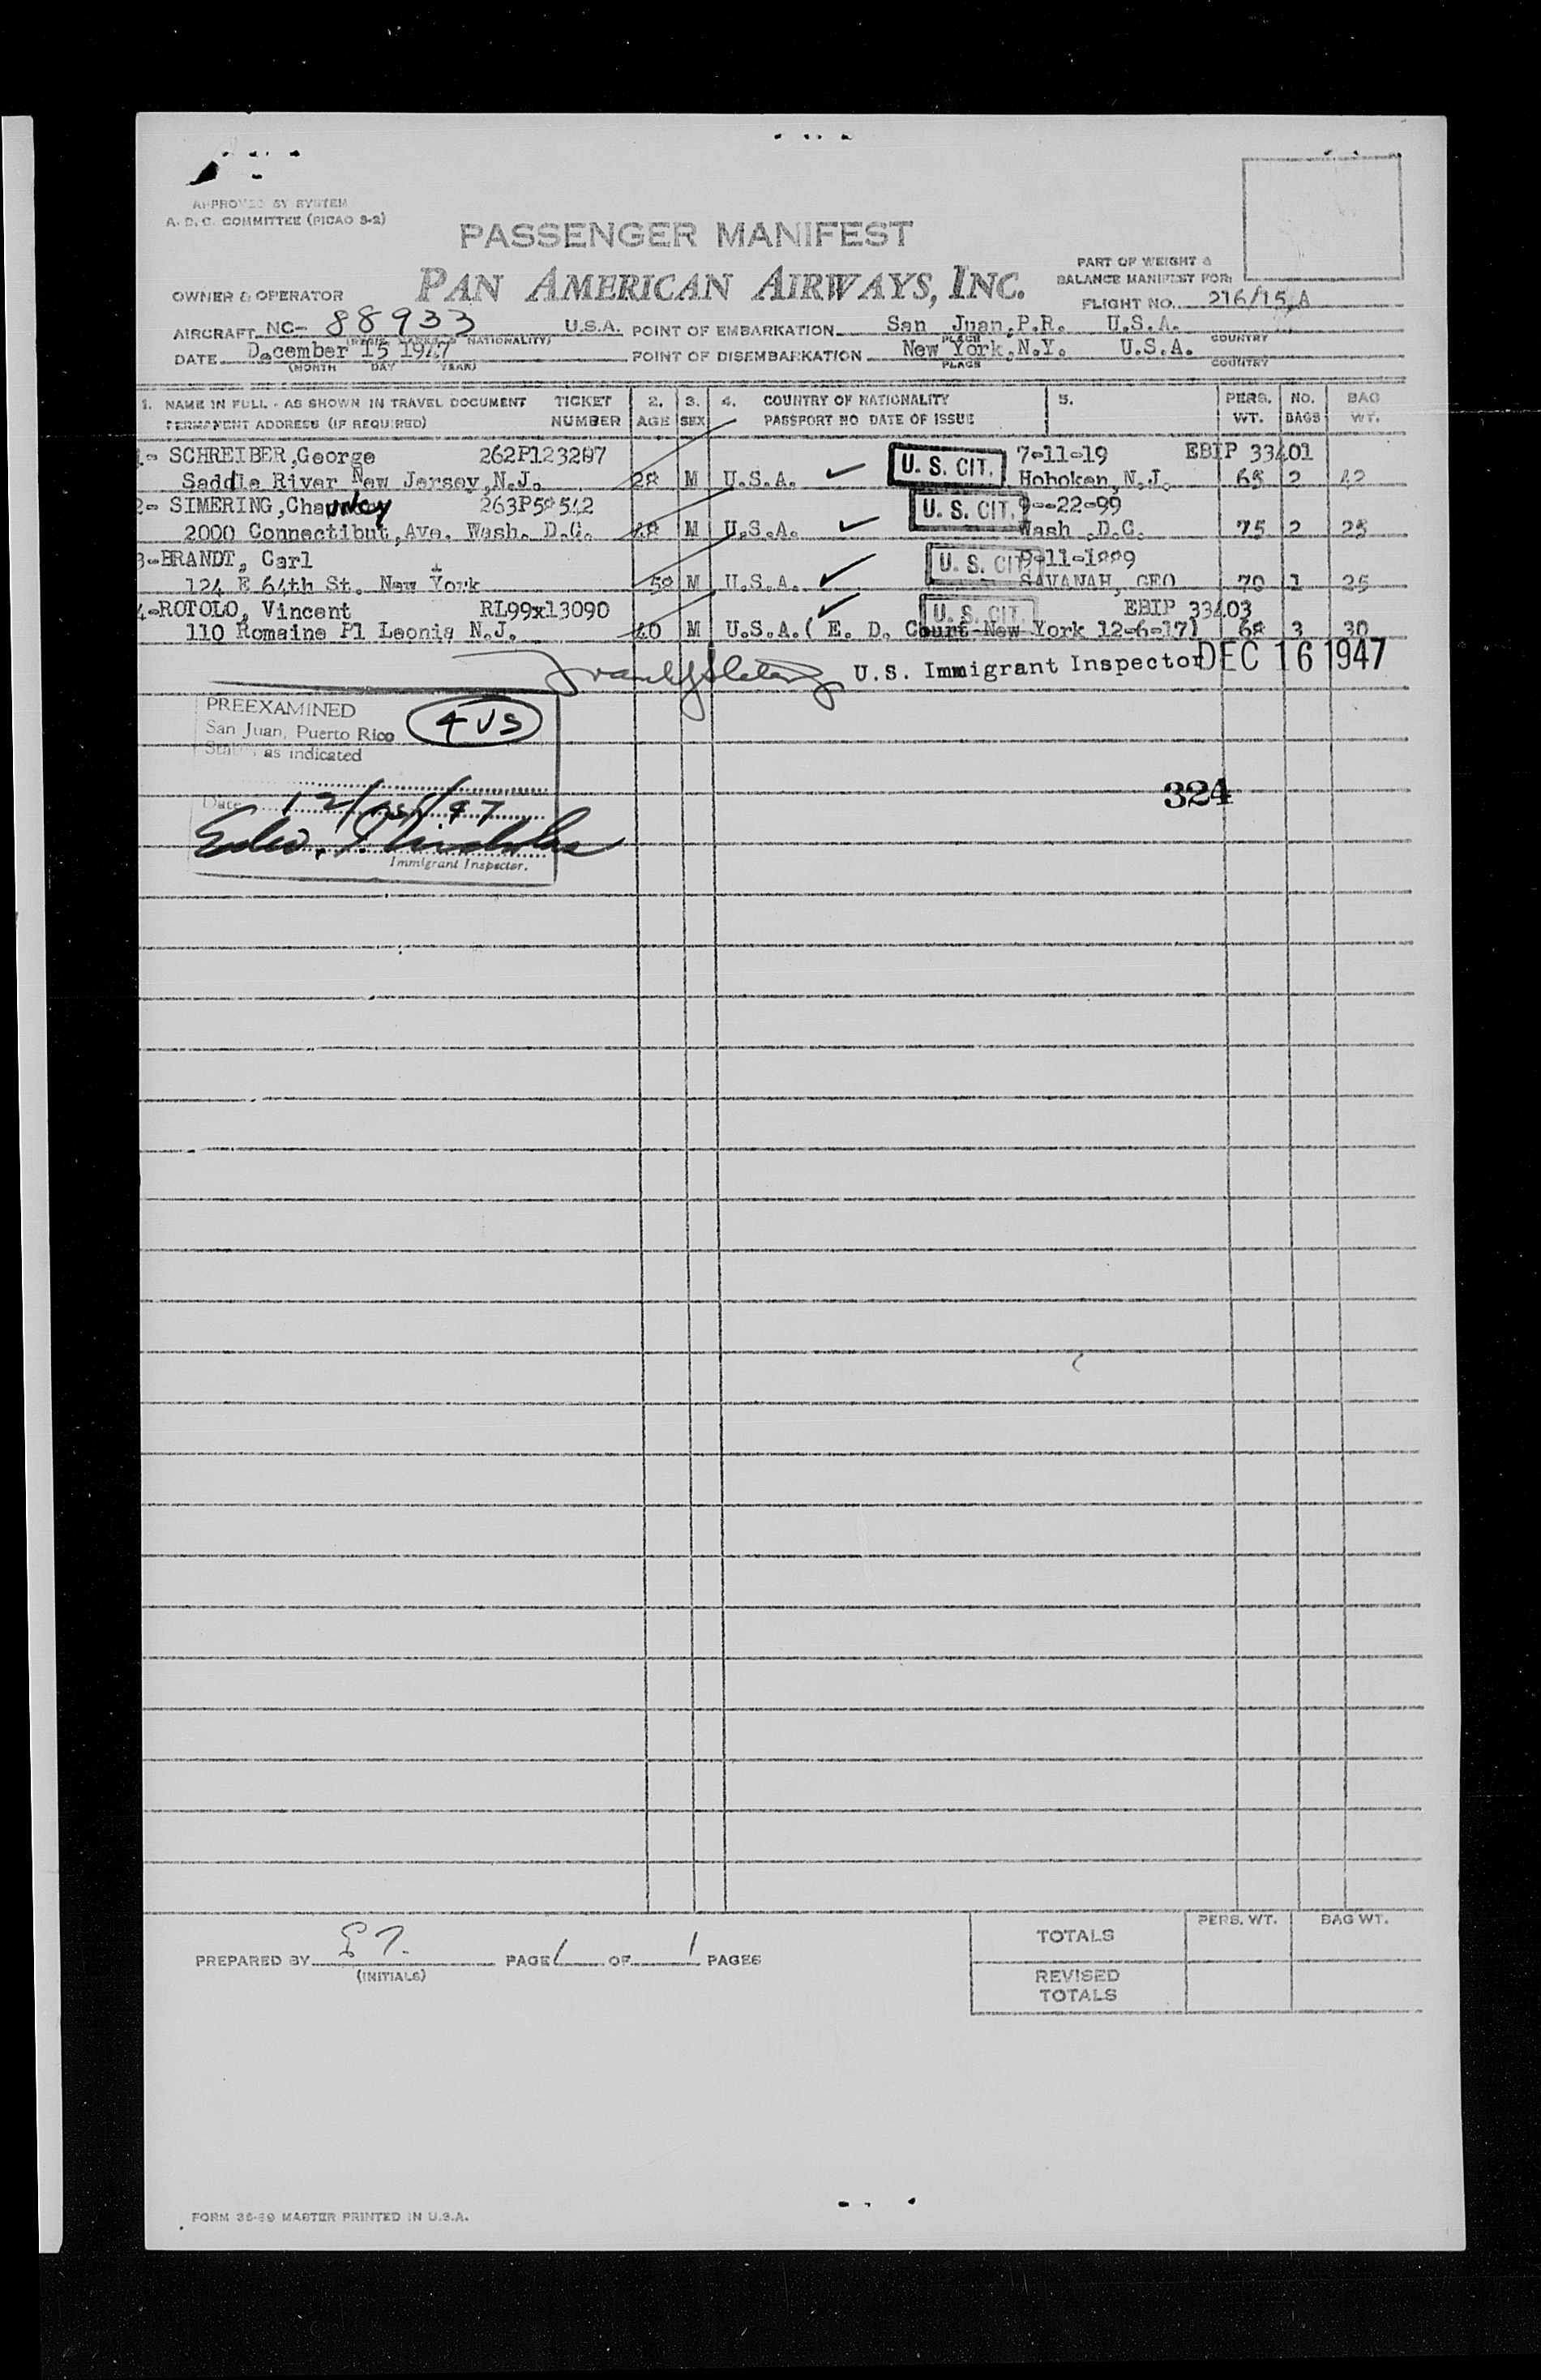 APPROVED BY SYSTEM
A. D. C. COMMITTEE (PICAO S-2)
PASSENGER MANIFEST
PAN AMERICAN AIRWAYS, INC.
PART OF WEIGHT &
BALANCE MANIFEST FOR:
OWNER & OPERATOR
FLIGHT NO. 216/15,A
AIRCRAFT NC- 88933 U.S.A. POINT OF EMBARKATION San Juan,P.R. U.S.A.
NATIONALITY) PLACE COUNTRY
DATE December 15 1947 POINT OF DISEMBARKATION New York,N.Y. U.S.A.
(MONTH DAY YEAR) PLACE COUNTRY
1. NAME IN FULL - AS SHOWN IN TRAVEL DOCUMENT TICKET 2. 3. 4. COUNTRY OF NATIONALITY 5. PERS. NO. BAG
PERMANENT ADDRESS (IF REQUIRED) NUMBER AGE SEX PASSPORT NO DATE OF ISSUE WT. BAGS WT.
1- SCHREIBER,George 262P123287 U. S. CIT. 7-11-19 EBIP 33401
Saddle River New Jersey,N.J. 28 M U.S.A. ✓ Hoboken,N.J. 65 2 42
2- SIMERING,Chauncey 263P58542 U. S. CIT. 9--22-99
2000 Connectibut,Ave. Wash. D.C. 48 M U.S.A. ✓ Wash ,D.C. 75 2 25
3-BRANDT, Carl U. S. CIT. 9-11-1889
124 E 64th St. New York 58 M U.S.A. ✓ SAVANAH, GEO 70 1 25
4-ROTOLO, Vincent RL99x13090 ✓ U. S. CIT. EBIP 33403
110 Romaine Pl Leonia N.J. 40 M U.S.A.( E. D. Court-New York 12-6-17) 68 3 30
U.S. Immigrant Inspector DEC 16 1947
PREEXAMINED
San Juan, Puerto Rico 4 US
as indicated
324
Date 12/15/47
Immigrant Inspector.
TOTALS PERS. WT. BAG WT.
PREPARED BY PAGE 1 OF 1 PAGES
(INITIALS)
REVISED
TOTALS
FORM 36-39 MASTER PRINTED IN U.S.A.